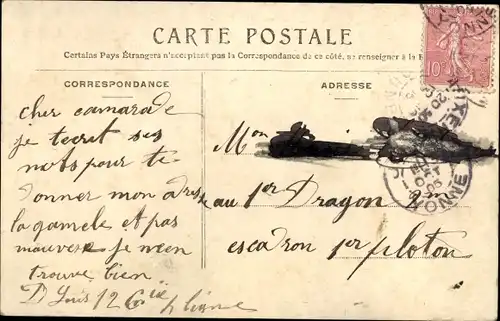 CARTE POSTALE
Certains Pays Étrangers n'acceptant pas la Correspondance de ce côté, se renseigner à la
CORRESPONDANCE
cher camarade
je tecrit ses
mots pour te
donner mon adresse
la gamele et pas
mauvese je ween
trouve bien
12 Cie ligne
ADRESSE
Mon
au 1er Dragon 2m
escadron 1er ploton
10
YONNE